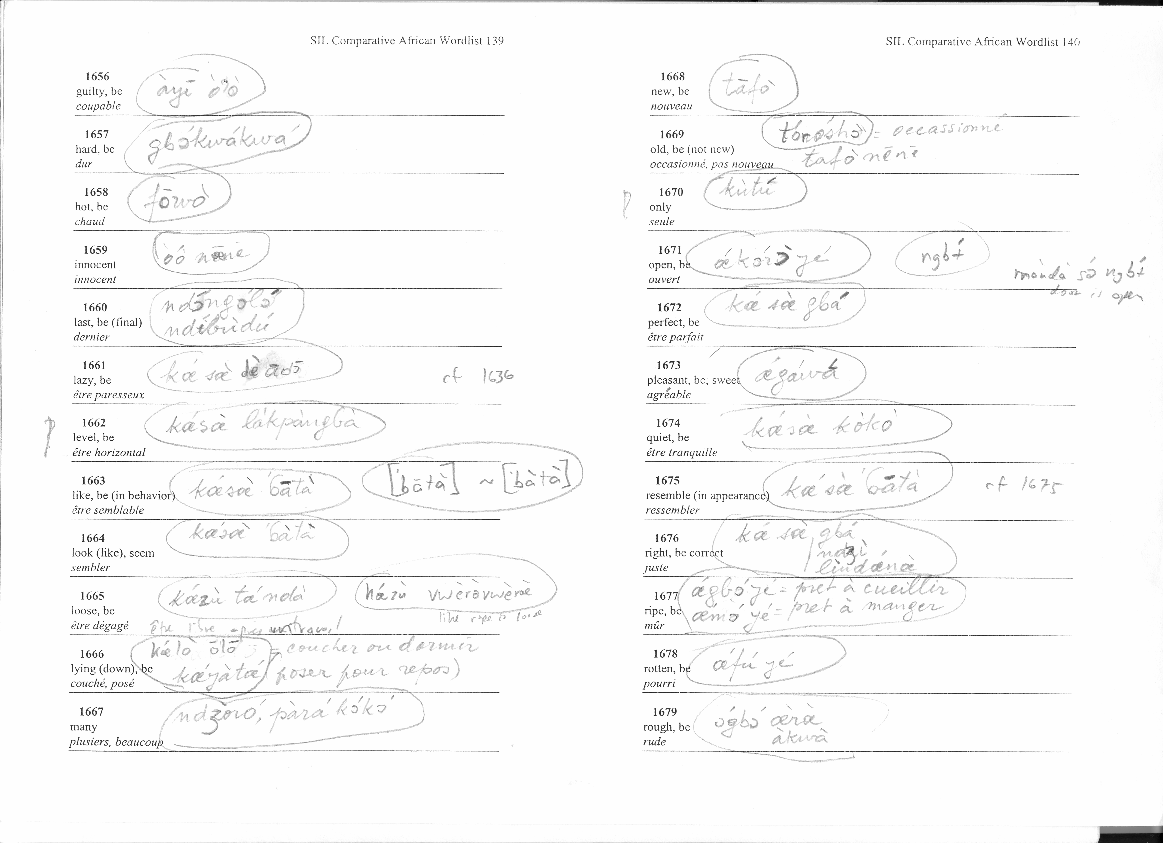 SIL Comparative African Wordlist 139
1656
guilty, be
coupable
àyī òlò
1657
hard, be
dur
gbɔ́kwákwá
1658
hot, be
chaud
fōwò
1659
innocent
innocent
òó
1660
last, be (final)
dernier
ndɔ̄ngóló
1661
lazy, be
être paresseux
ká sæ̀
cf 1636
1662
level, be
être horizontal
kǽsæ̀ lákpàngbà
1663
like, be (in behavior)
être semblable
kǽsæ̀ ɓātà
[ɓātà] ~ [ɓàtà]
1664
look (like), seem
sembler
kǽsæ̀ ɓàtà
1665
loose, be
être dégagé
kǽzù tá ndà
like rope is loose
1666
lying (down), be
couché, posé
kǽlò ōlō = coucher ou dormir
kǽyàtǽ poser pour repos)
1667
many
plusiers, beaucoup
ndzóró, pàrá kɔ́kɔ́
SIL Comparative African Wordlist 140
1668
new, be
nouveau
tāfò
1669
old, be (not new)
occasionné, pas nouveau
= occassionné
tafò nēnē
1670
only
seule
kùtú
1671
open, be
ouvert
ngbɨ́
mandà sɔ̀ ngbɨ́
door is open
1672
perfect, be
être parfait
kǽ sæ̀ gbá
1673
pleasant, be, sweet
agréable
1674
quiet, be
être tranquille
kǽsæ̀ kókó
1675
resemble (in appearance)
ressembler
kǽ sæ̀ ɓātà
cf 1675
1676
right, be correct
juste
kǽ sæ̀ gbá
1677
ripe, be
mûr
ǽgbɔ́ yé = pret à cueillir
ǽmɔ́ yé = pret à manger
1678
rotten, be
pourri
ǽfú yé
1679
rough, be
rude
àkwà